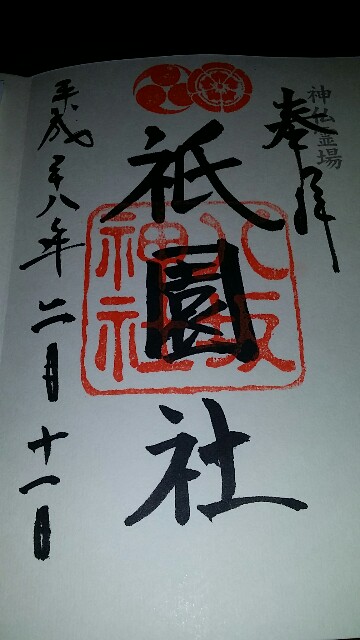 神仏霊場
奉拝
祇園社
八坂神社
平成二十八年二月十一日